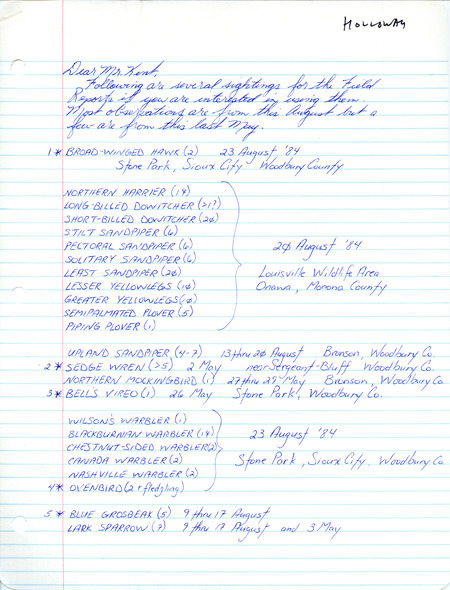 HOLLOWAY
Dear Mr. Kent,
Following are several sightings for the Field
Reports if you are interested in using them.
Most observations are from this August but a
few are from this last May.
1* BROAD-WINGED HAWK (2) 23 August '84
Stone Park, Sioux City Woodbury County
NORTHERN HARRIER (1♀)
LONG-BILLED DOWITCHER (>1?)
SHORT-BILLED DOWITCHER (20)
STILT SANDPIPER (6)
PECTORAL SANDPIPER (6)
SOLITARY SANDPIPER (6)
LEAST SANDPIPER (20)
LESSER YELLOWLEGS (10)
GREATER YELLOWLEGS (10)
SEMIPALMATED PLOVER (5)
PIPING PLOVER (1)
20 August '84
Louisville Wildlife Area
Onawa, Monona County
UPLAND SANDPIPER (4-7) 13 thru 20 August Bronson, Woodbury Co.
2* SEDGE WREN (>5) 2 May near Sergeant-Bluff Woodbury Co.
NORTHERN MOCKINGBIRD (1) 27 thru 29 May Bronson, Woodbury Co.
3* BELL'S VIREO (1) 26 May Stone Park, Woodbury Co.
WILSON'S WARBLER (1)
BLACKBURNIAN WARBLER (1♀)
CHESTNUT-SIDED WARBLER (2)
CANADA WARBLER (2)
NASHVILLE WARBLER (2)
4* OVENBIRD (2 + fledgling)
23 August '84
Stone Park, Sioux City. Woodbury Co
5* BLUE GROSBEAK (5) 9 thru 17 August
LARK SPARROW (7) 9 thru 17 August and 3 May